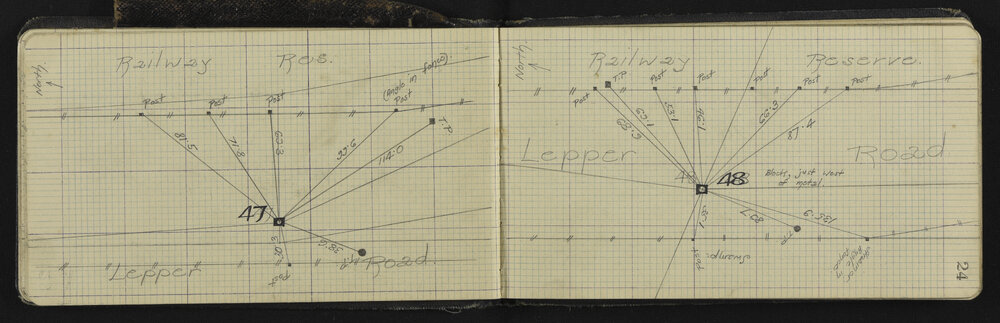 North
Railway Res.
Post
Post
Post
(angle in fence)
Post
T.P
81.5
71.8
63.3
93.6
114.0
47
38.6
Post
Lepper Road.
North
Railway Reserve.
Post
T.P
Post
Post
Post
Post
Post
65.3
63.1
53.1
66.3
87.4
Lepper Road
48
Block, just west
of metal.
83.7
138.9
T.P
Post
Swamp
24